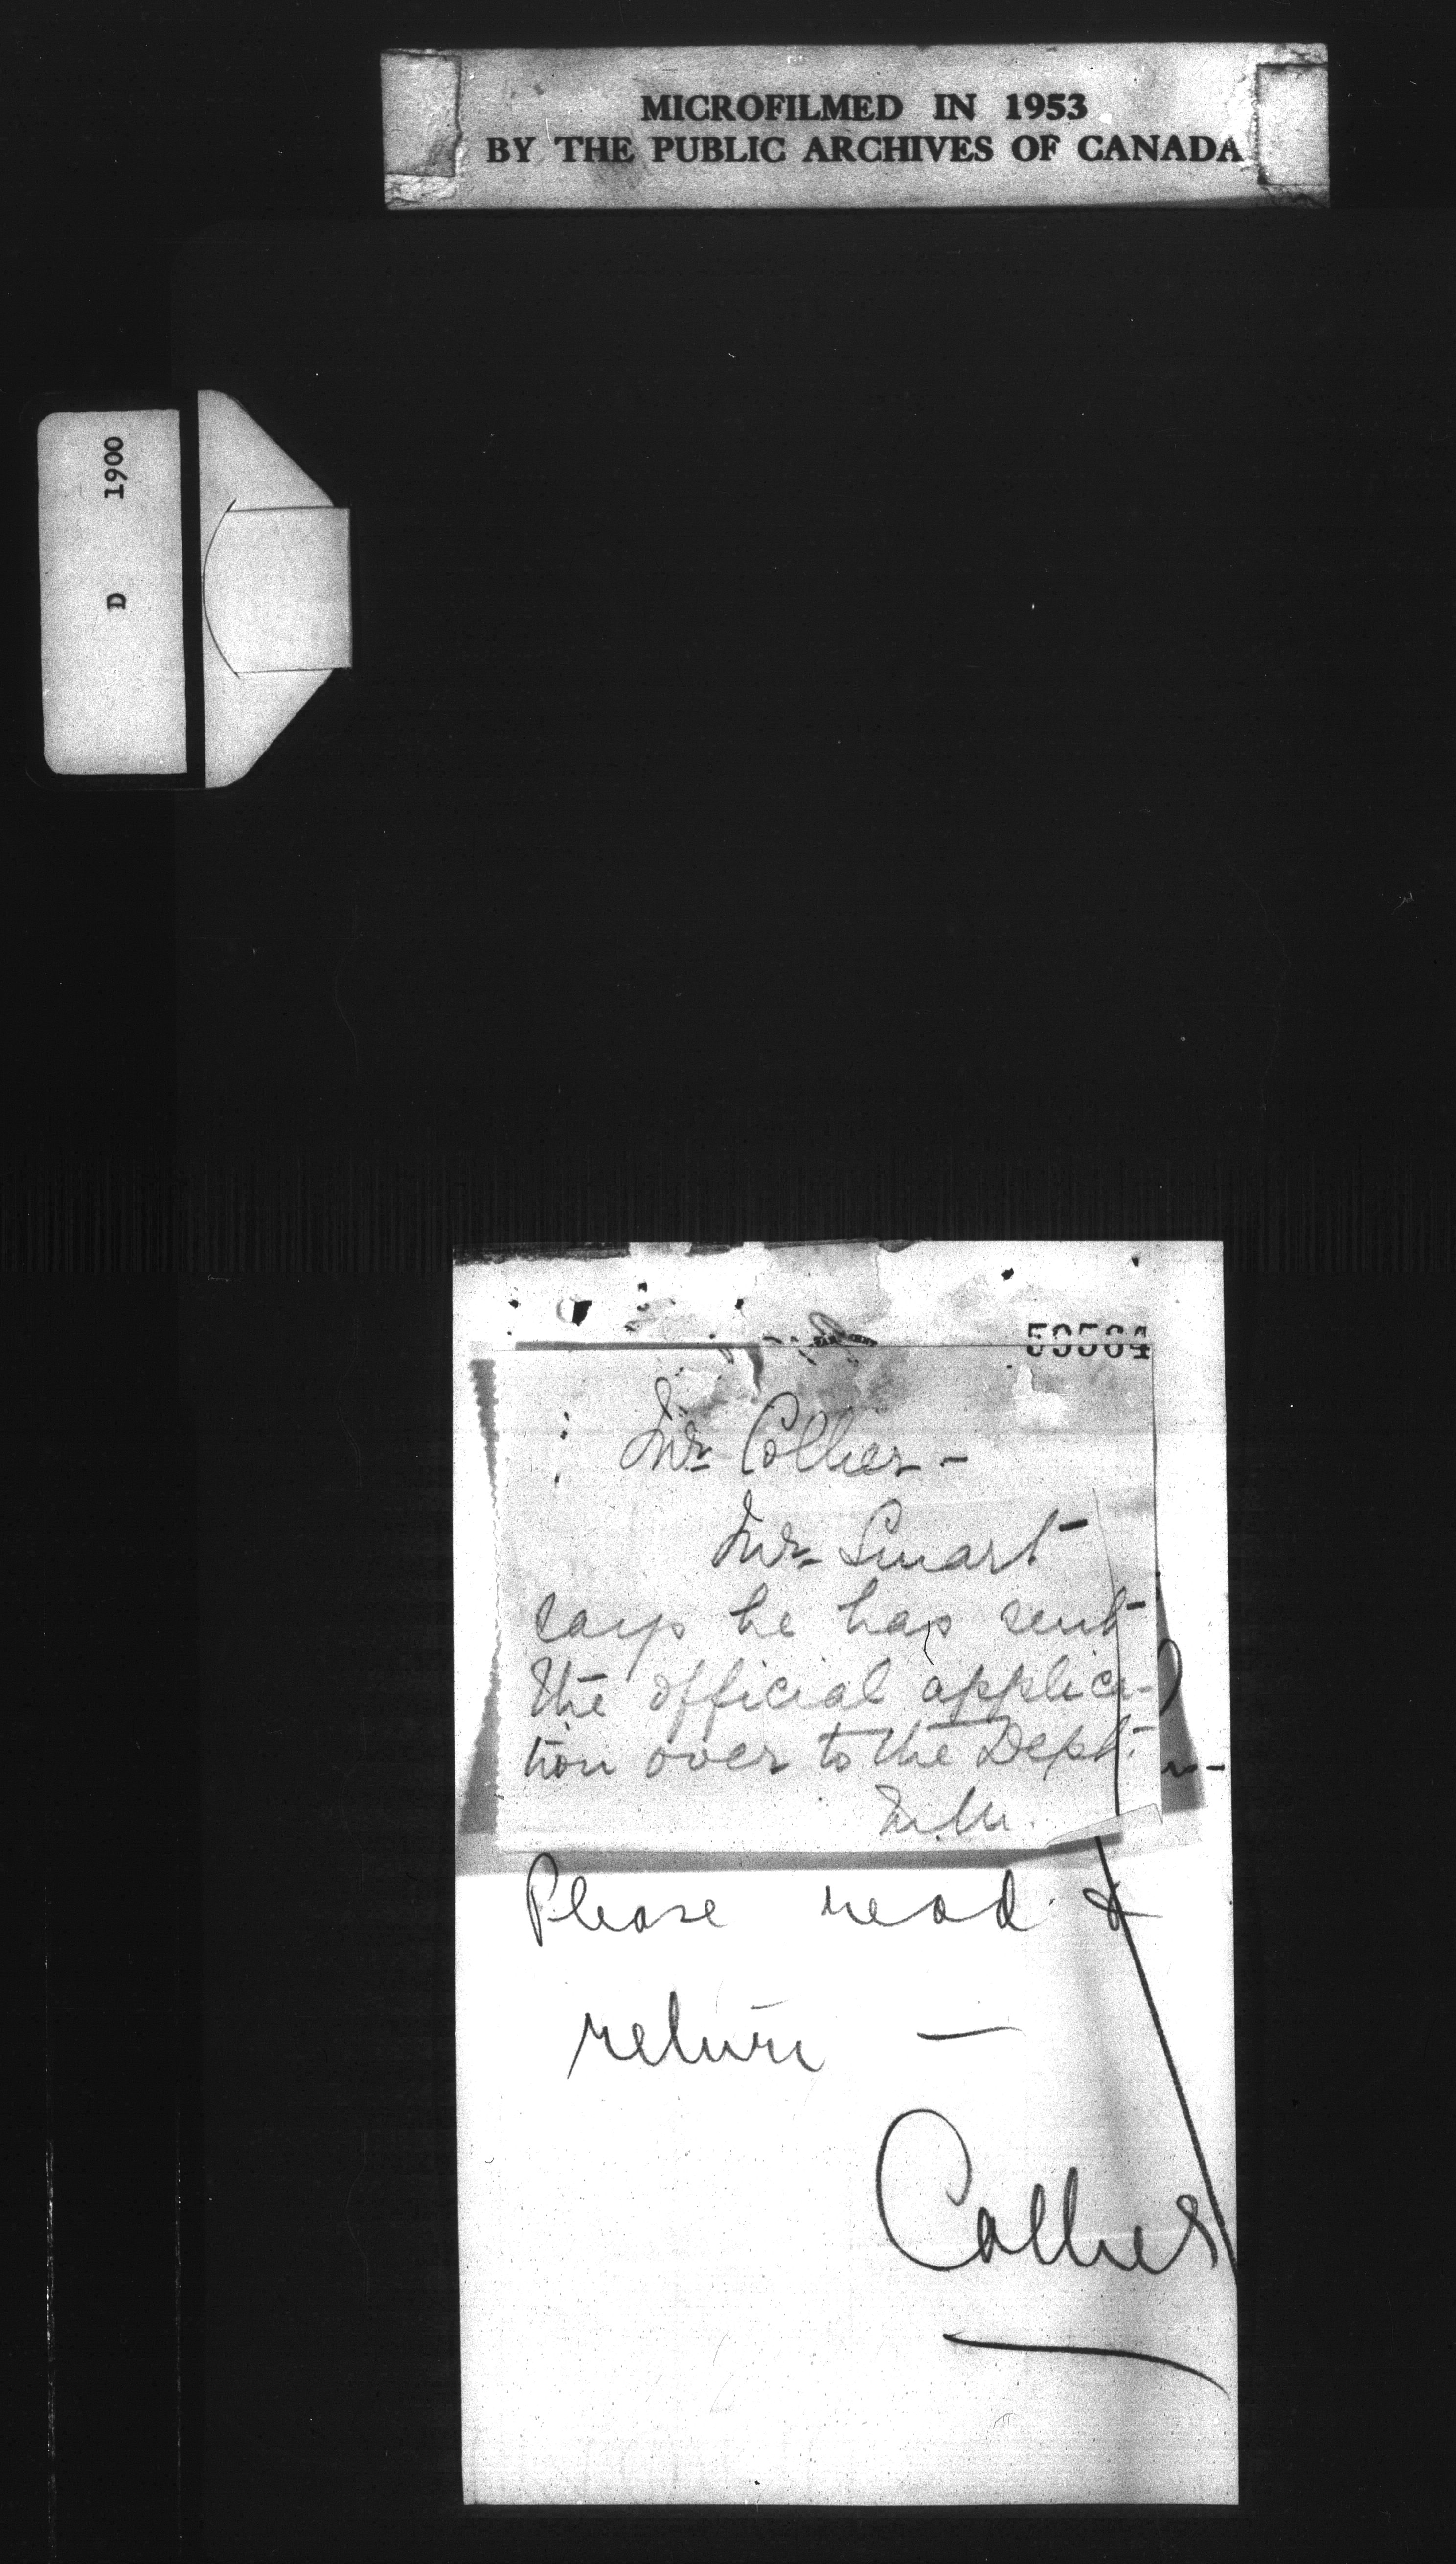 MICROFILMED IN 1953
BY THE PUBLIC ARCHIVES OF CANADA
D 1900
59564
Mr. Collier -
Mr. Smart
says he has sent
the official applica-
tion over to the Dept.
Please read &
return —
Collier